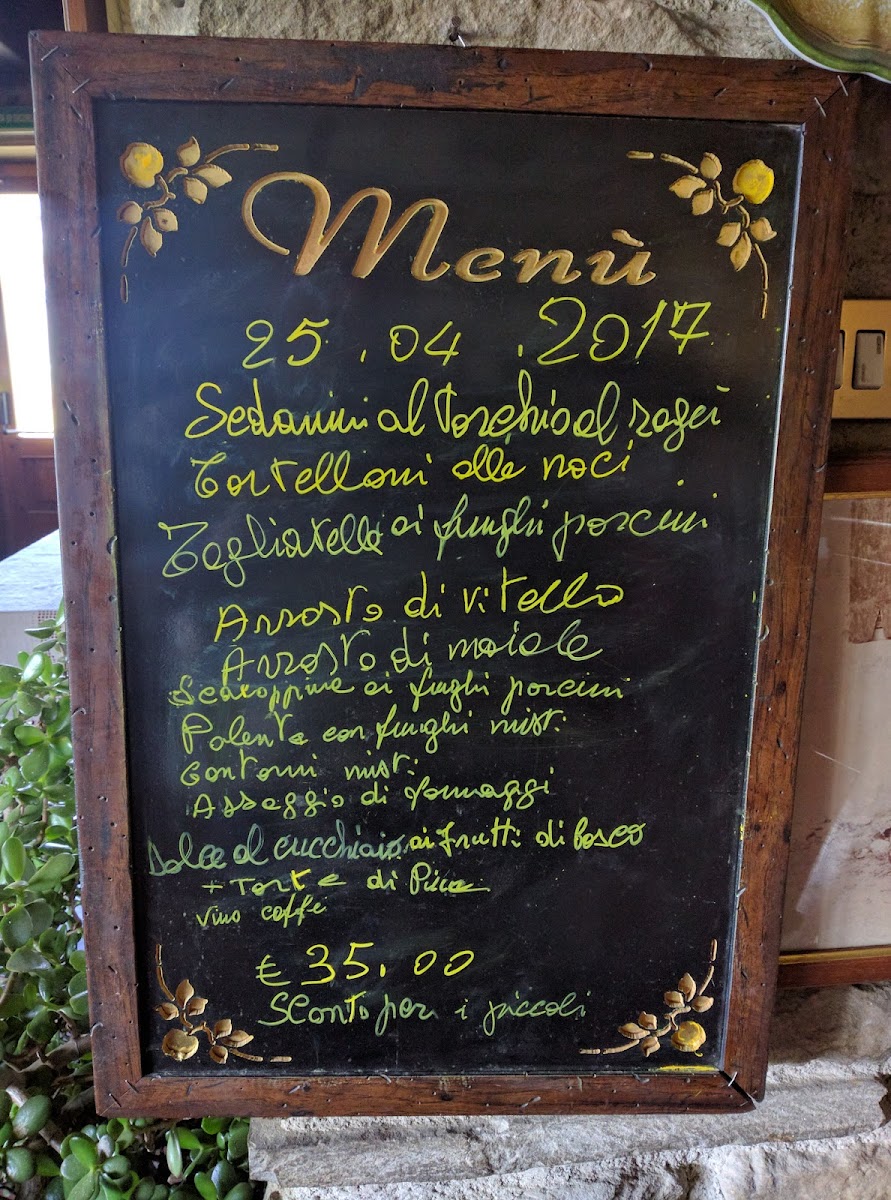 Menù
25.04.2017
Sedanini al Torchio al ragù
Tortelloni alle noci
Tagliatelle ai funghi porcini
Arrosto di vitello
Arrosto di maiale
Scaloppine ai funghi porcini
Polenta con funghi misti
Contorni misti
Assaggio di formaggi
Dolce al cucchiaio ai frutti di bosco
+ Torta di
vino caffè
€ 35.00
Sconto per i piccoli